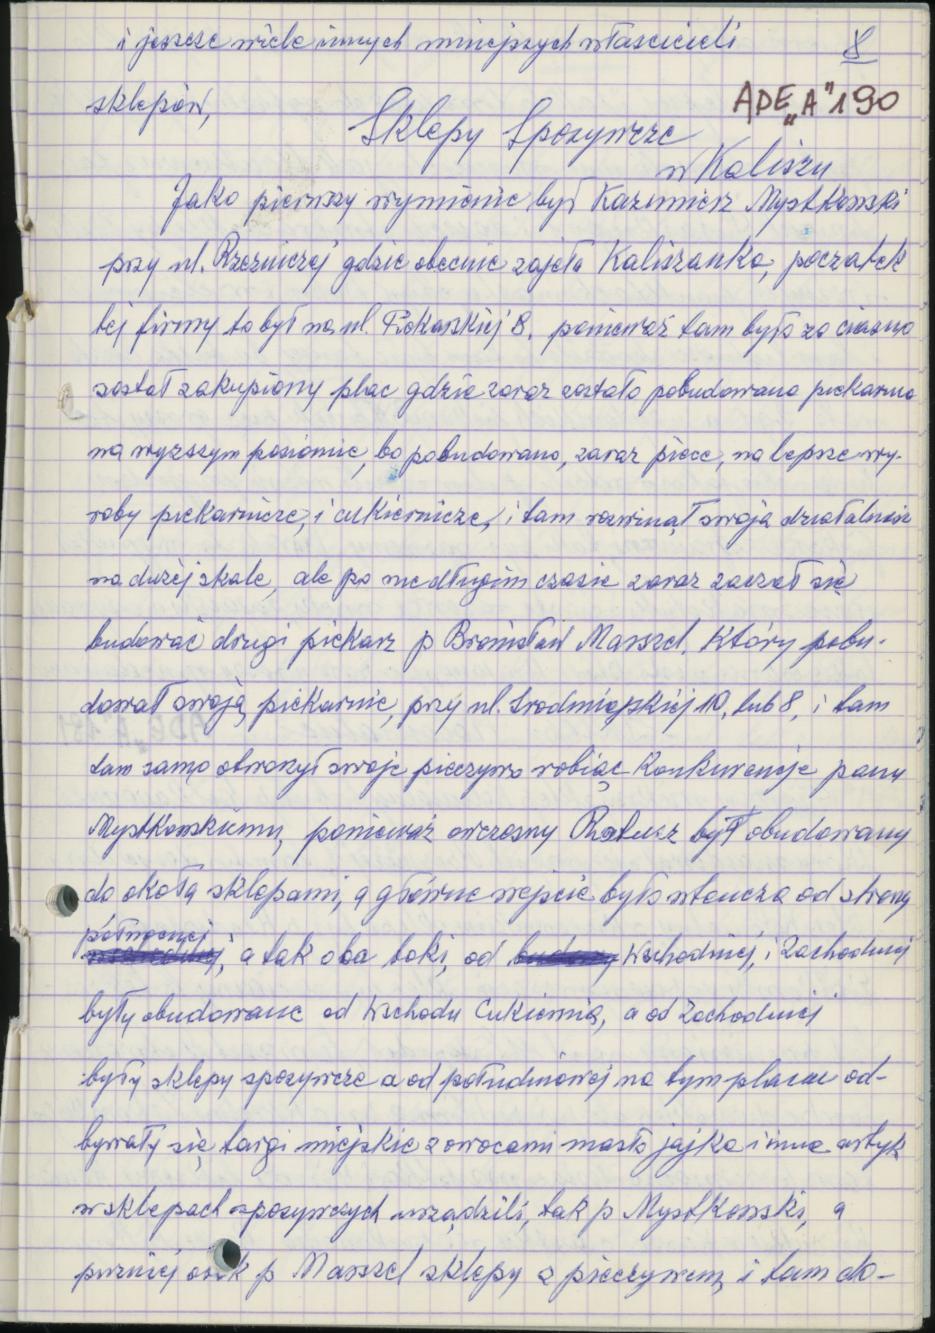 i jeszcze wiele innych mniejszych właścicieli
8
sklepów,
ADE „A" 190
Sklepy Spożywcze
w Kaliszu
Jako pierwszy wymienie był Kazimierz Mystkowski
przy ul. Rzeźniczej gdzie obecnie zajęła Kaliszanka, początek
tej firmy to był na ul. Piekarskiej 8. ponieważ tam było za ciasno
został zakupiony plac gdzie zaraz zostało pobudowana piekarnia
na wyższym poziomie, bo pobudowano, zaraz piece, na lepsze wy-
roby piekarnicze, i cukiernicze, i tam rozwinął swoją działalność
na dużej skale, ale po niedługim czasie zaraz zaczął się
budować drugi piekarz p Bronisław Marszel, który pobu-
dował swoją piekarnie, przy ul. Śródmiejskiej 10, lub 8, i tam
tam samo otworzył swoje pieczywo robiąc Konkurencje panu
Mystkowskiemu, ponieważ owczesny Ratusz był obudowany
do okoła sklepami, a główne wejście było wtencza od strony
północnej
, a tak oba boki, od Wschodniej, i Zachodniej
były obudowane od Wschodu Cukiernią, a od Zachodniej
były sklepy spożywcze a od południowej na tym placu od-
bywały się targi miejskie z owocami masło jajka i inne artyk
w sklepach spożywczych urządzili, tak p Mystkowski, a
puzniej p Marszel sklepy z pieczywem i tam do-